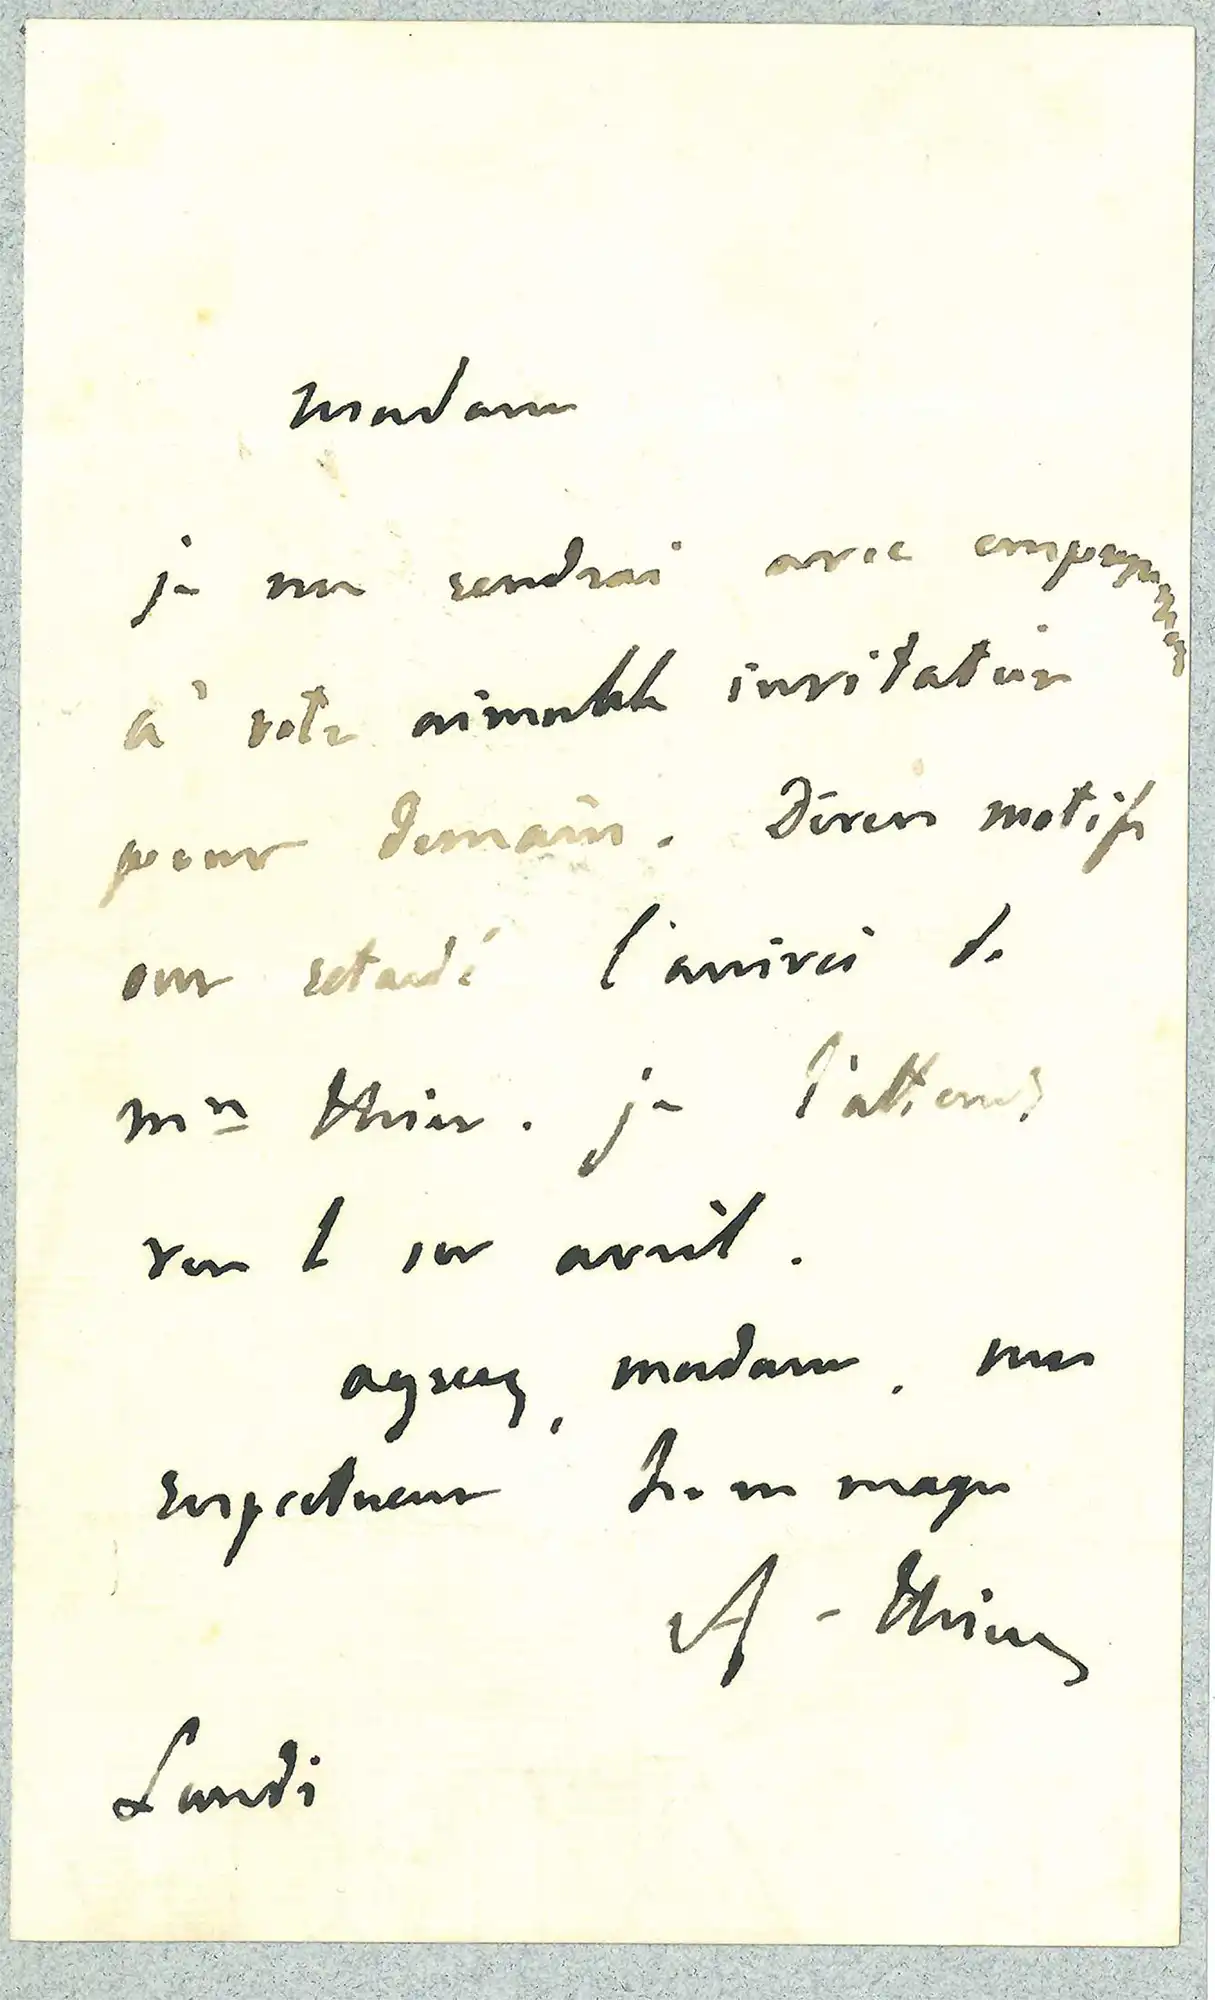 Madame
je me rendrai avec empressement
à votre aimable invitation
pour demain. Divers motifs
ont retardé l'arrivée de
Mme Thiers. je l'attends
vers le 1er avril.
agreez, madame, mes
respectueux hommages
A. Thiers
Lundi